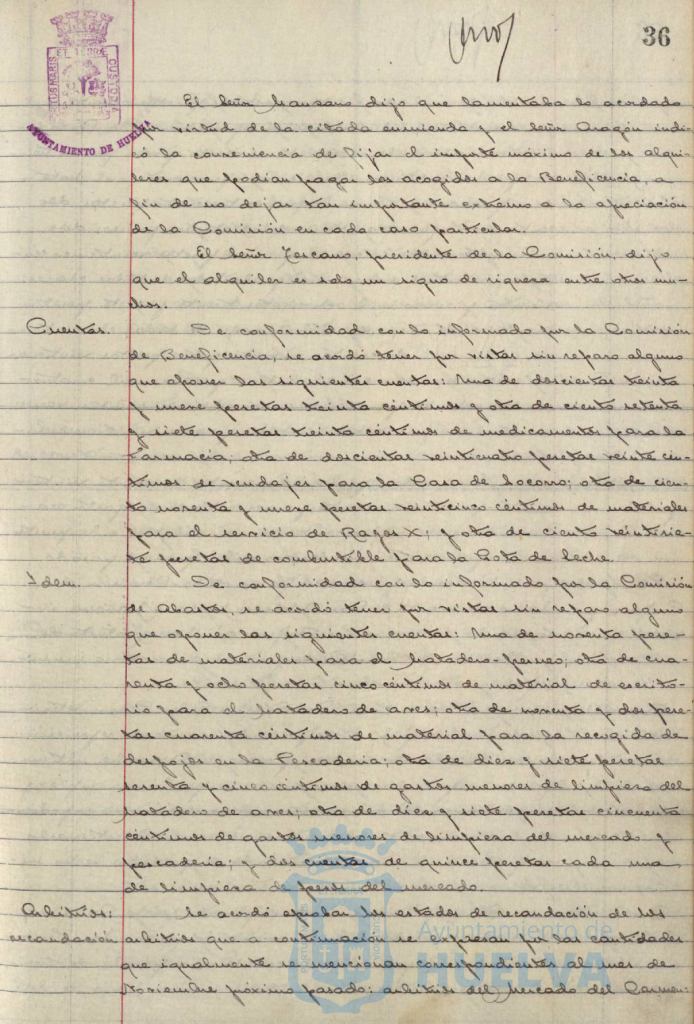 36
PORTUS MARIS ET TERRE CUSTODIA
AYUNTAMIENTO DE HUELVA
El Señor Manzano dijo que lamentaba lo acordado
por virtud de la citada enmienda y el Señor Aragón indi-
có la conveniencia de fijar el importe máximo de los alqui-
leres que podian pagar los acogidos a la Beneficencia, a
fin de no dejar tan importante extremo a la apreciación
de la Comisión en cada caso particular.
El Señor Toscano, presidente de la Comisión, dijo
que el alquiler es solo un signo de riqueza entre otros mu-
chos.
Cuentas. De conformidad con lo informado por la Comisión
de Beneficencia, se acordó tener por vistas sin reparo alguno
que oponer las siguientes cuentas: Una de doscientas treinta
y nueve pesetas treinta céntimos y otra de ciento setenta
y siete pesetas treinta céntimos de medicamentos para la
Farmacia; otra de doscientas veinticuatro pesetas veinte cén-
timos de vendajes para la Casa de Socorro; otra de cien-
to noventa y nueve pesetas veinticinco céntimos de materiales
para el servicio de Rayos X; y otra de ciento veintisie-
te pesetas de combustible para la Gota de leche.
Idem. De conformidad con lo informado por la Comisión
de Abastos, se acordó tener por vistas sin reparo alguno
que oponer las siguientes cuentas: Una de noventa pese-
tas de materiales para el Matadero-perneo; otra de cua-
renta y ocho pesetas cinco céntimos de material de escrito-
rio para el Matadero de aves; otra de noventa y dos pese-
tas cuarenta céntimos de material para la recogida de
despojos en la Pescaderia; otra de diez y siete pesetas
sesenta y cinco céntimos de gastos menores de limpieza del
Matadero de aves; otra de diez y siete pesetas cincuenta
céntimos de gastos menores de limpieza del mercado y
pescaderia; y dos cuentas de quince pesetas cada una
de limpieza de pesos del mercado.
Arbitrios: Se acordó aprobar los estados de recaudación de los
recaudación arbitrios que a continuación se expresan por las cantidades
que igualmente se mencionan correspondientes al mes de
Noviembre próximo pasado: arbitrios del Mercado del Carmen:
Ayuntamiento de
HUELVA